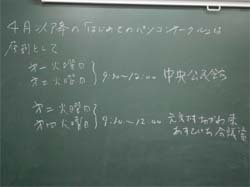 4月以降の「はじめてのパソコンサークル」は
原則として
第一火曜日
第三火曜日 } 9:30〜12:00 中央公民館
第二火曜日
第四火曜日 } 9:30〜12:00 会議室